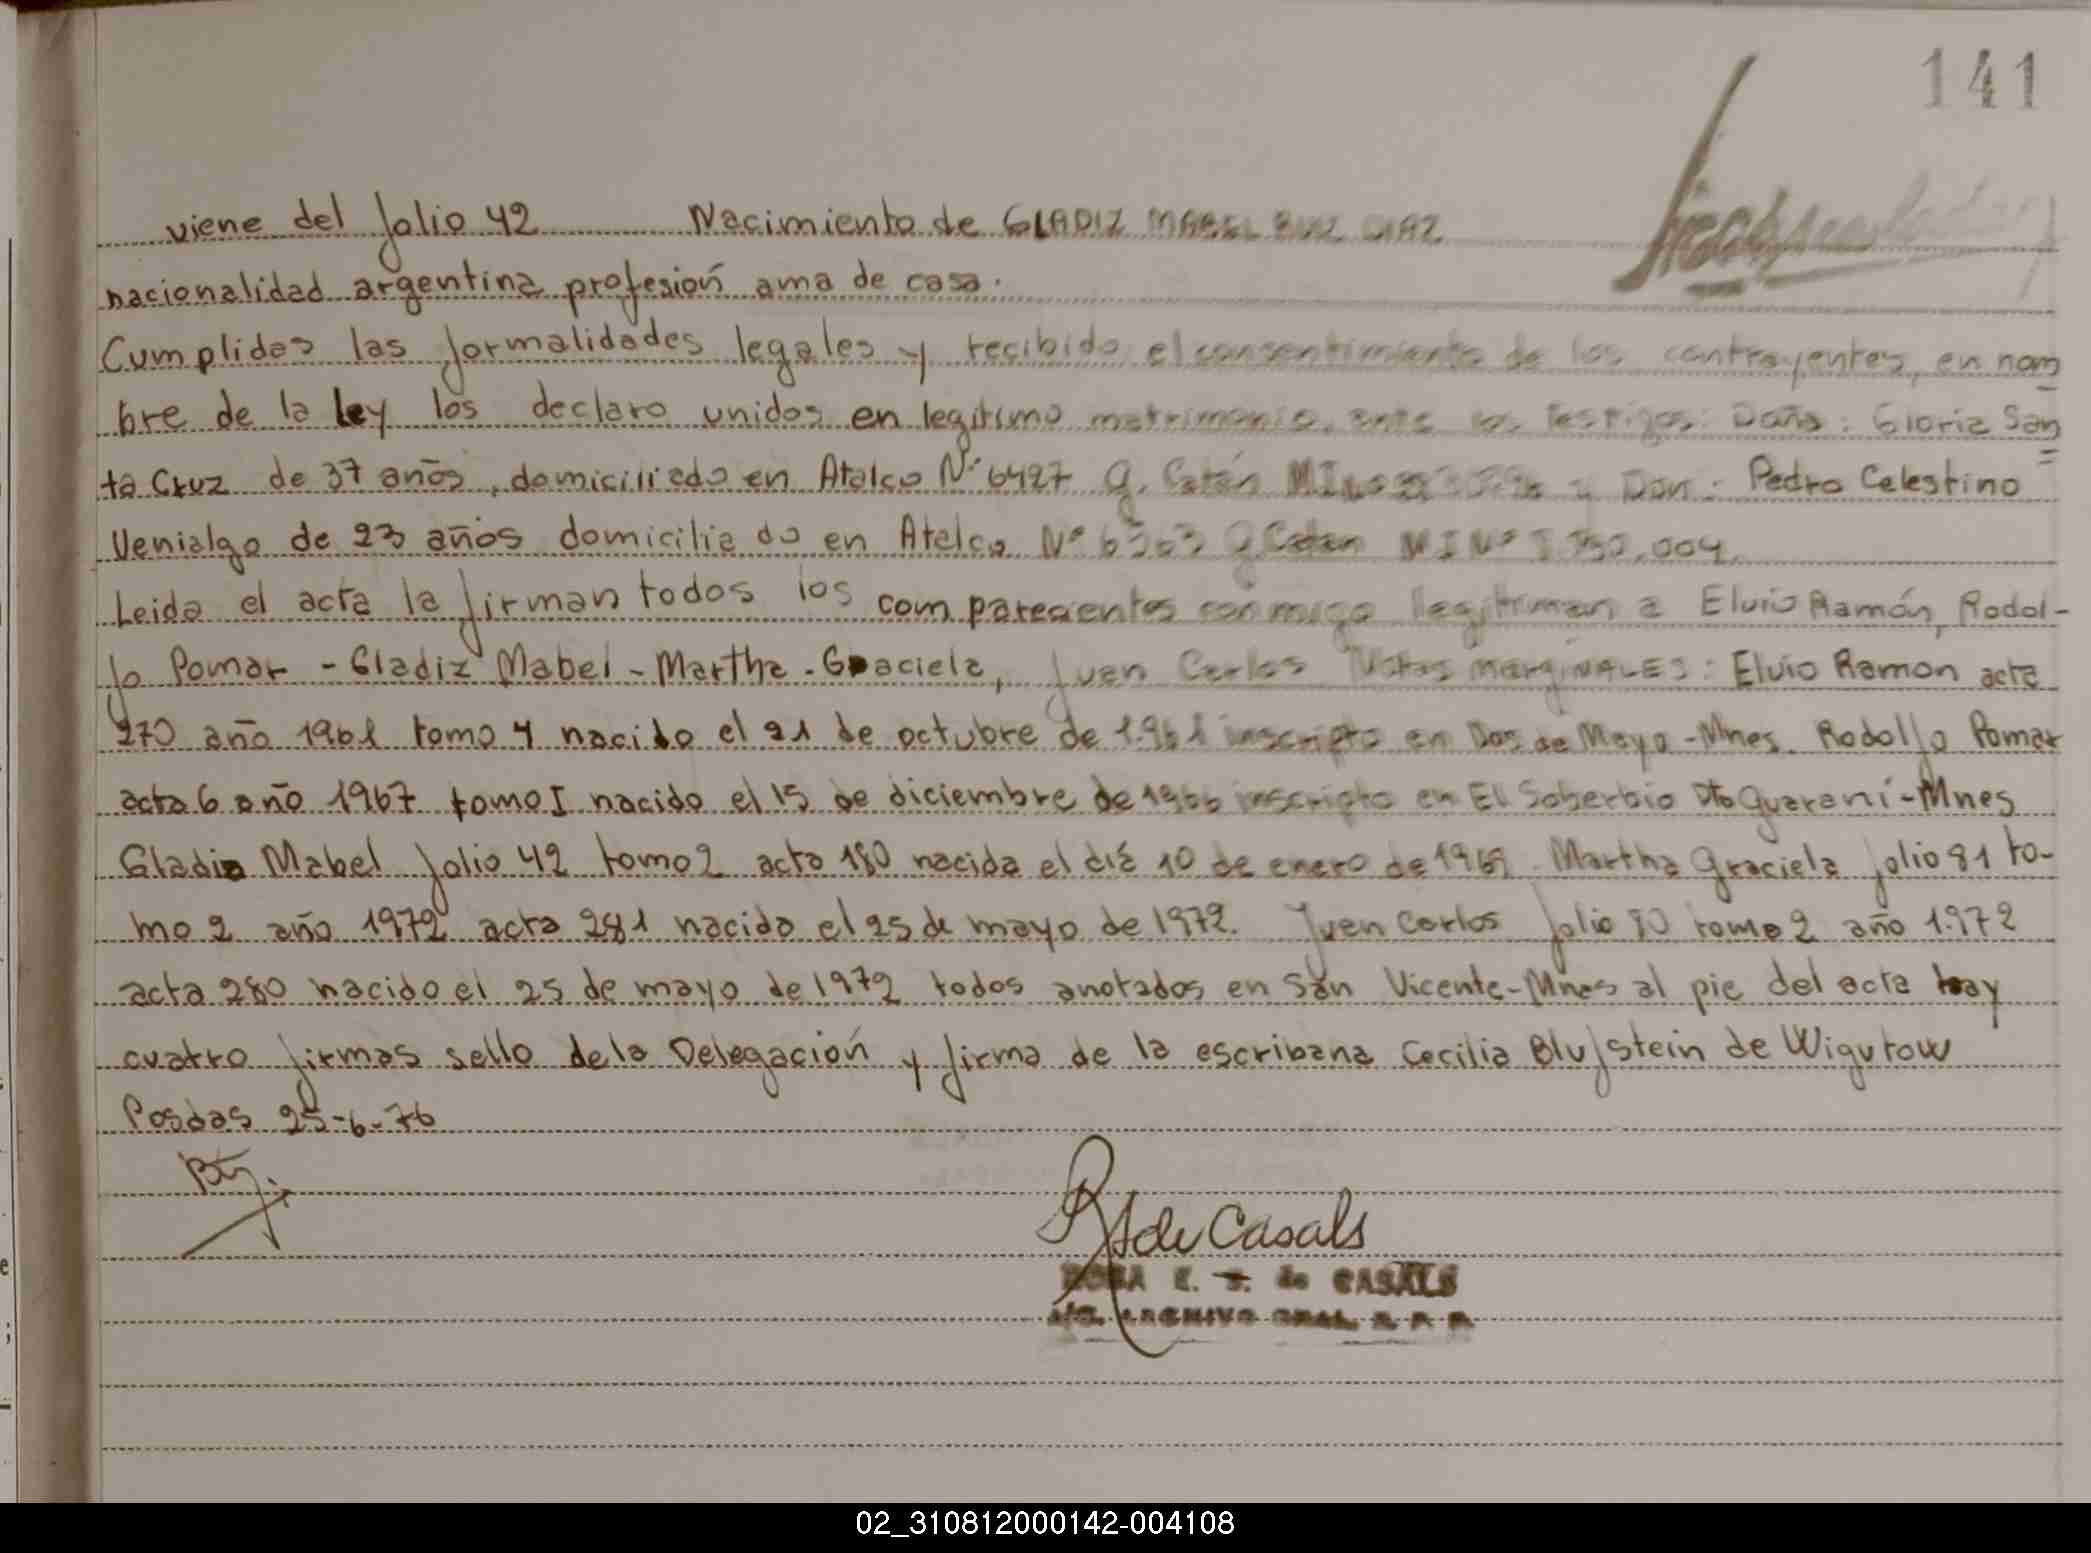 141
viene del folio 42 Nacimiento de GLADIZ MABEL RUIZ DIAZ
nacionalidad argentina profesión ama de casa.
Cumplidas las formalidades legales y recibido el consentimiento de los contrayentes, en nom
bre de la ley los declaro unidos en legitimo matrimonio, ante los testigos: Doña: Gloria San
ta Cruz de 37 años, domiciliado en Atalco Nº 6427 G. Catán y Don: Pedro Celestino
Venialgo de 23 años domiciliado en Atalco Nº 6363 G Catan MI Nº
Leida el acta la firman todos los comparecientes conmigo legitiman a Elvio Ramón, Rodol-
fo Pomar - Gladiz Mabel - Martha - Graciela, Juan Carlos Notas MARGINALES: Elvio Ramon acta
270 año 1961 tomo 4 nacido el 21 de octubre de 1.961 inscripto en Dos de Mayo - Mnes. Rodolfo Pomar
acta 6 año 1967 tomo I nacido el 15 de diciembre de 1966 inscripto en El Soberbio Dto Guaraní - Mnes
Gladiz Mabel folio 42 tomo 2 acta 180 nacida el día 10 de enero de 1969. Martha Graciela folio 81 to-
mo 2 año 1972 acta 281 nacida el 25 de mayo de 1972. Juan Carlos folio 80 tomo 2 año 1.972
acta 280 nacido el 25 de mayo de 1972 todos anotados en San Vicente - Mnes al pie del acta hay
cuatro firmas sello de la Delegación y firma de la escribana Cecilia Blufstein de Wigutow
Posdas 25-6-76
de Casals
ROSA E. de CASALS
ARCHIVO GRAL. R. P. P.
02_310812000142-004108